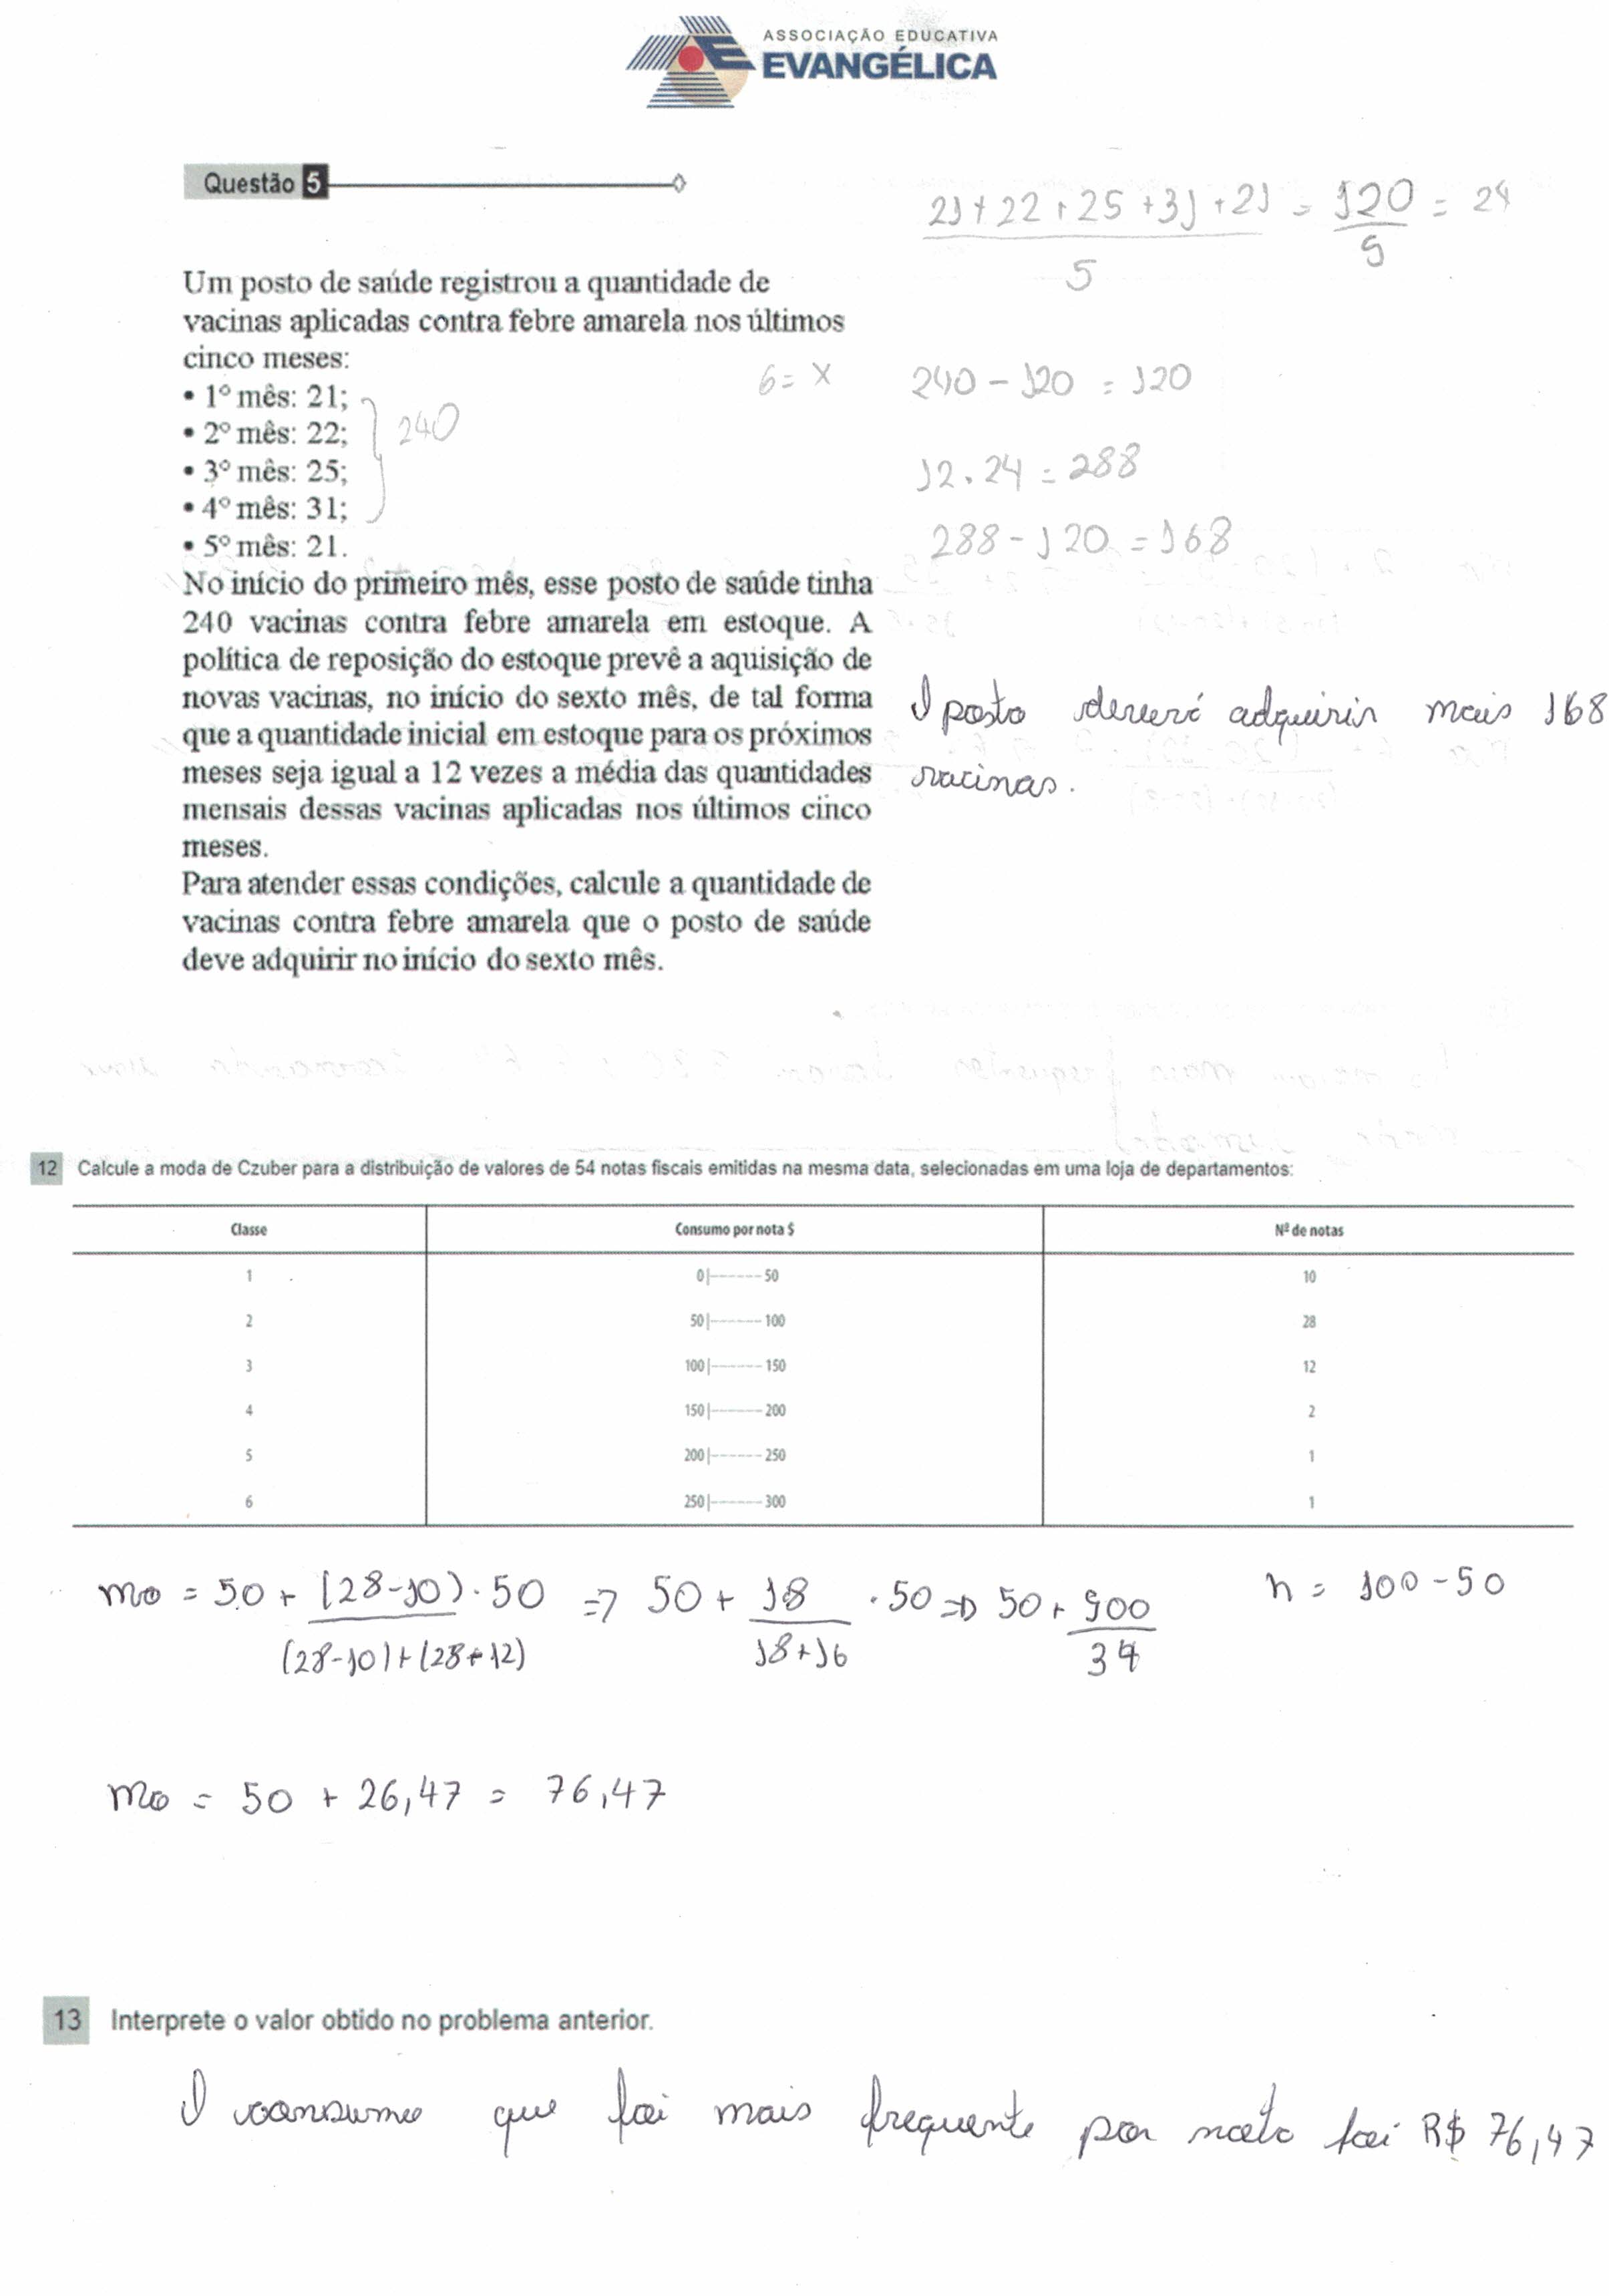 ASSOCIAÇÃO EDUCATIVA
EVANGÉLICA
Questão 5
21 + 22 + 25 + 31 + 21 = 120 = 24
5 5
Um posto de saúde registrou a quantidade de
vacinas aplicadas contra febre amarela nos últimos
cinco meses:
• 1º mês: 21;
• 2º mês: 22;
• 3º mês: 25;
• 4º mês: 31;
• 5º mês: 21.
240
6 = x
240 - 120 = 120
12 . 24 = 288
288 - 120 = 168
No início do primeiro mês, esse posto de saúde tinha
240 vacinas contra febre amarela em estoque. A
política de reposição do estoque prevê a aquisição de
novas vacinas, no início do sexto mês, de tal forma
que a quantidade inicial em estoque para os próximos
meses seja igual a 12 vezes a média das quantidades
mensais dessas vacinas aplicadas nos últimos cinco
meses.
Para atender essas condições, calcule a quantidade de
vacinas contra febre amarela que o posto de saúde
deve adquirir no início do sexto mês.
O posto deverá adquirir mais 168
vacinas.
12 Calcule a moda de Czuber para a distribuição de valores de 54 notas fiscais emitidas na mesma data, selecionadas em uma loja de departamentos:
Classe Consumo por nota $ Nº de notas
1 0|------50 10
2 50|------100 28
3 100|------150 12
4 150|------200 2
5 200|------250 1
6 250|------300 1
mo = 50 + (28-10) . 50 => 50 + 18 . 50 => 50 + 900 h = 100 - 50
(28-10) + (28+12) 18+16 34
mo = 50 + 26,47 = 76,47
13 Interprete o valor obtido no problema anterior.
O consumo que foi mais frequente por nota foi R$ 76,47